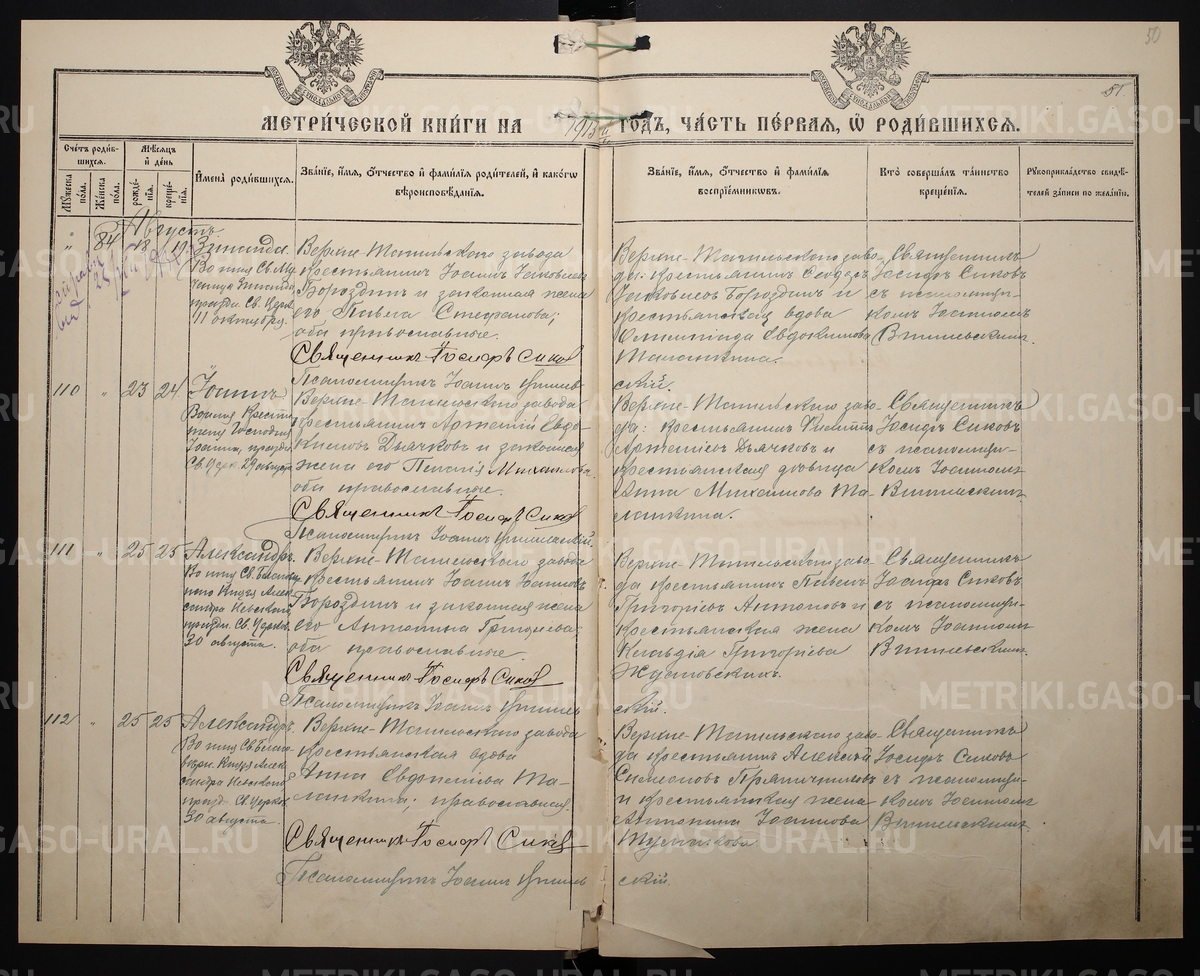 50
51
МЕТРИЧЕСКОЙ КНИГИ НА 1913й ГОДЪ, ЧАСТЬ ПЕРВАЯ, Ѡ РОДИВШИХСЯ.
Счетъ родившихся.
Мѣсяцъ и день
Мужеска пола.
Женска пола.
рожденія.
крещенія.
Имена родившихся.
Званіе, имя, отчество и фамилія родителей, и какогѡ вѣроисповѣданія.
Званіе, имя, отчество и фамилія воспріемниковъ.
Кто совершалъ таинство крещенія.
Рукоприкладство свидѣтелей записи по желанію.
Августъ.
" 84 18 19 Зинаида.
Во имя Св. Му-
ченицы Зинаиды
праздн. Св. Церк.
11 октября.
Верхне-Тагильскаго завода
крестьянинъ Іоаннъ Іаковлевъ
Бороздинъ и законная жена
его Павла Стефанова;
оба православные.
Священникъ Іосифъ Сиковъ
Псаломщикъ Іоаннъ
Верхне-Тагильскаго заво-
да: крестьянинъ Ѳеодоръ
Іаковлевъ Бороздинъ и
крестьянская вдова
Олимпіада Евдокимова
Маланкина.
скій.
Священникъ
Іосифъ Сиковъ
съ псаломщи-
комъ Іоанномъ
110 " 23 24 Іоаннъ
Во имя Крести-
теля Господня
Іоанна, праздн.
Св. Церк. 29 августа
Верхне-Тагильскаго завода
крестьянинъ Артемій Евдо-
кимовъ Дьячковъ и законная
жена его Пелагія Михаилова
оба православные.
Священникъ Іосифъ Сиковъ
Псаломщикъ Іоаннъ
Верхне-Тагильскаго заво-
да: крестьянинъ
Артеміевъ Дьячковъ и
крестьянская дѣвица
Анна Михаилова Ма-
ланкина.
Священникъ
Іосифъ Сиковъ
съ псаломщи-
комъ Іоанномъ
111 " 25 25 Александръ.
Во имя Св. Благовѣр-
наго Князя Алек-
сандра Невскаго,
праздн. Св. Церков.
30 августа.
Верхне-Тагильскаго завода
крестьянинъ Іоаннъ Іоанновъ
Бороздинъ и законная жена
его Антонина Григорьева
оба православные.
Священникъ Іосифъ Сиковъ
Псаломщикъ Іоаннъ
Верхне-Тагильскаго заво-
да крестьянинъ Павелъ
Григорьевъ Антоновъ и
крестьянская жена
Клавдія Григорьева
скій.
Священникъ
Іосифъ Сиковъ
съ псаломщи-
комъ Іоанномъ
112 " 25 25 Александръ.
Во имя Св. Благо-
вѣрн. Князя Алек-
сандра Невскаго
празд. Св. Церков.
30 августа.
Верхне-Тагильскаго завода
крестьянская вдова
Анна Ма-
ланкина; православная.
Священникъ Іосифъ Сиковъ
Псаломщикъ Іоаннъ
Верхне-Тагильскаго заво-
да крестьянинъ Алексѣй
и крестьянская жена
Антонина Іоаннова
скій.
Священникъ
Іосифъ Сиковъ
съ псаломщи-
комъ Іоанномъ
METRIKI.GASO-URAL.RU